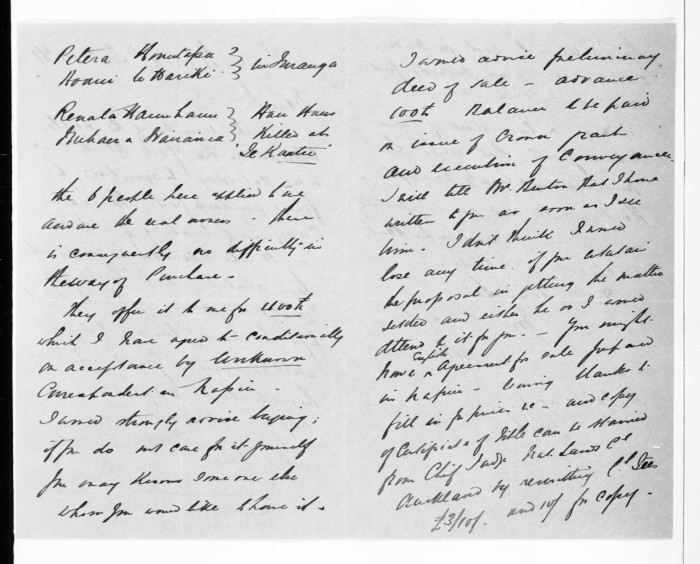 Petera
in Turanga
Renata
Hau Haus
Killed at
the 6 people here applied to me
and are the real owners - there
is consequently no difficulty in
the way of Purchase -
They offer it to me for
which I have agreed to conditionally
on acceptance by Unknown
Correspondent in Napier -
I would strongly advise buying;
if you do not care for it yourself
you may know some one else
whom you would like to have it -
I would advise preliminary
deed of sale - advance
100£ Balance to be paid
on issue of Crown grant
and execution of Conveyance
I will tell Mr. that I have
written to you as soon as I see
him - I don't think I would
lose any time if you entertain
the proposal in getting the matter
settled and either he or I would
attend to it for you - You might
have English Agreement for sale prepared
in Napier - leaving blanks to
fill in for prices &c - and copy
of Certificate of Title can be obtained
from Chief Judge Nat. Lands Ct
Auckland by remitting Ct Fees
£3/10/- and 10/ for copy -